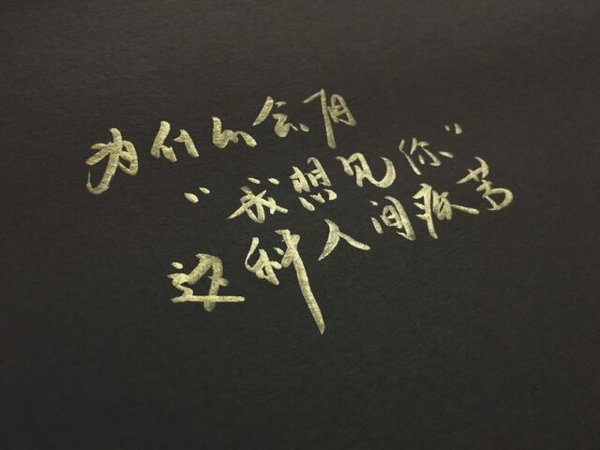 为什么会有
“我想见你”
这种人间疾苦